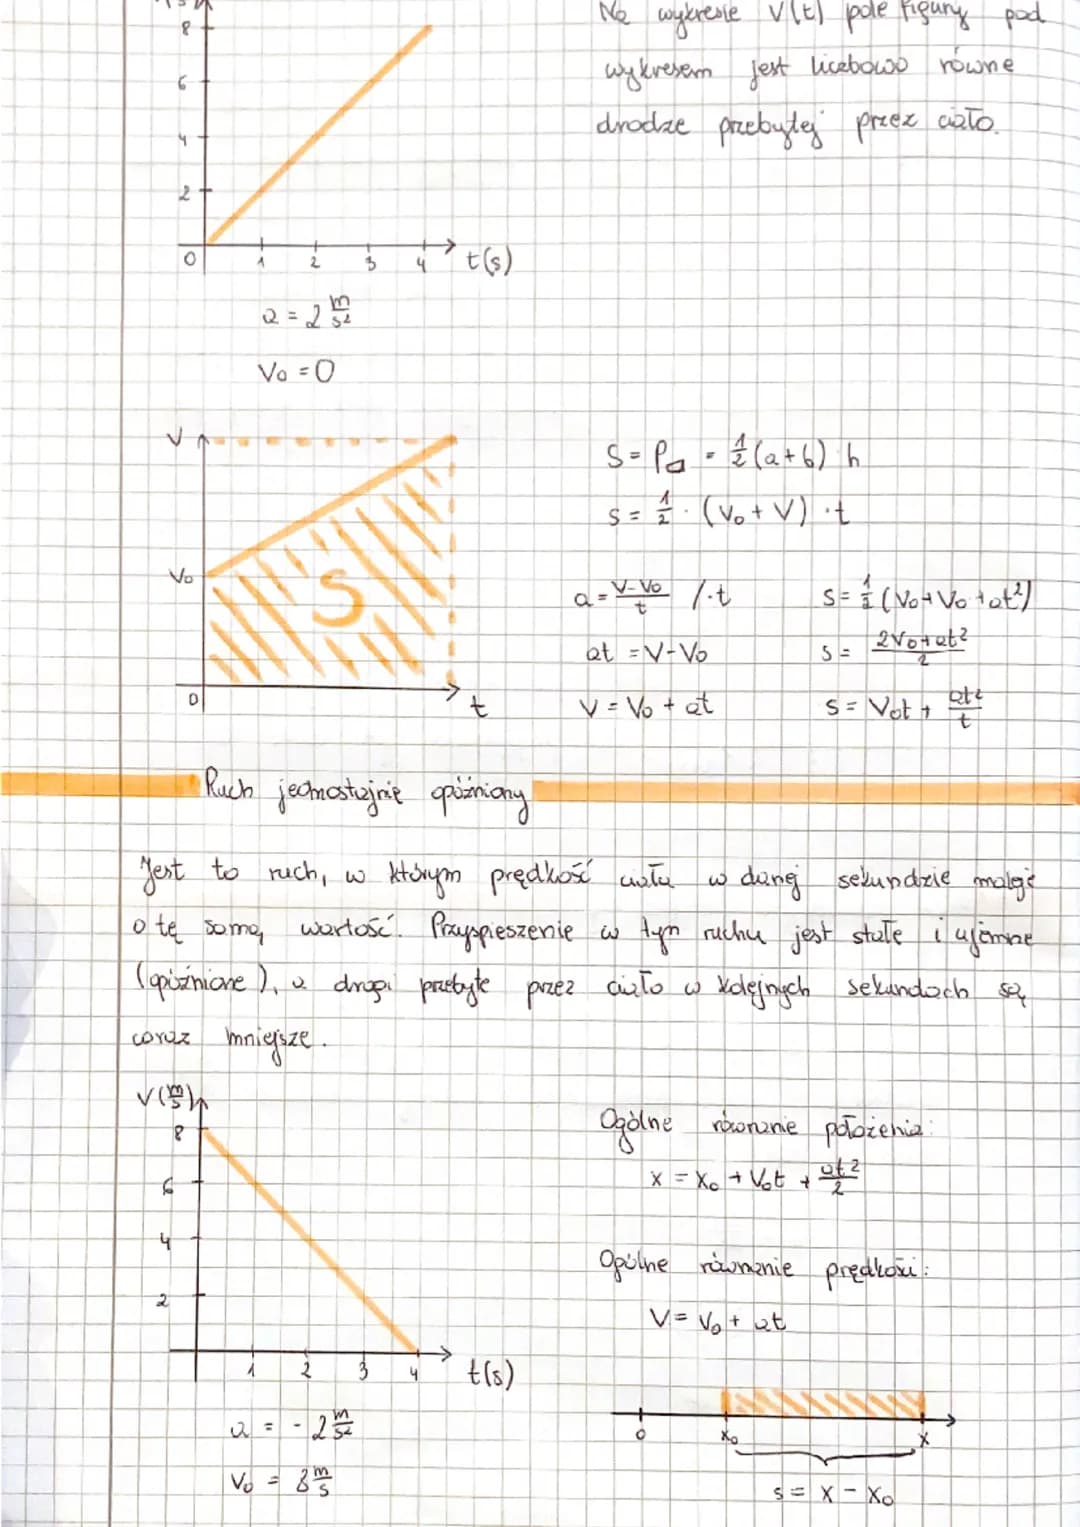 Na wykresie V(t) pole figury pod
wykresem jest liczbowo równe
drodze przebytej przez ciało.
8
6
4
2
0 1 2 3 4 t(s)
a = 2 m/s²
V₀ = 0
V
V₀
S
0
t
S = P▱ = ½(a+b) h
s = ½ · (V₀ + V) · t
a = V-V₀/t /·t
at = V-V₀
V = V₀ + at
s = ½ (V₀+V₀+at²)
s = 2V₀+at²/2
s = V₀t + at²/t
Ruch jednostajnie opóźniony
Jest to ruch, w którym prędkość ciała w danej sekundzie maleje
o tę samą wartość. Przyspieszenie w tym ruchu jest stałe i ujemne
(opóźnione), a drogi przebyte przez ciało w kolejnych sekundach są
coraz mniejsze.
V(m/s)
8
6
4
2
1 2 3 4 t(s)
a = - 2 m/s²
V₀ = 8 m/s
Ogólne równanie położenia:
x = x₀ + V₀t + at²/2
Ogólne równanie prędkości:
V = V₀ + at
0 x₀ x
s = x - x₀